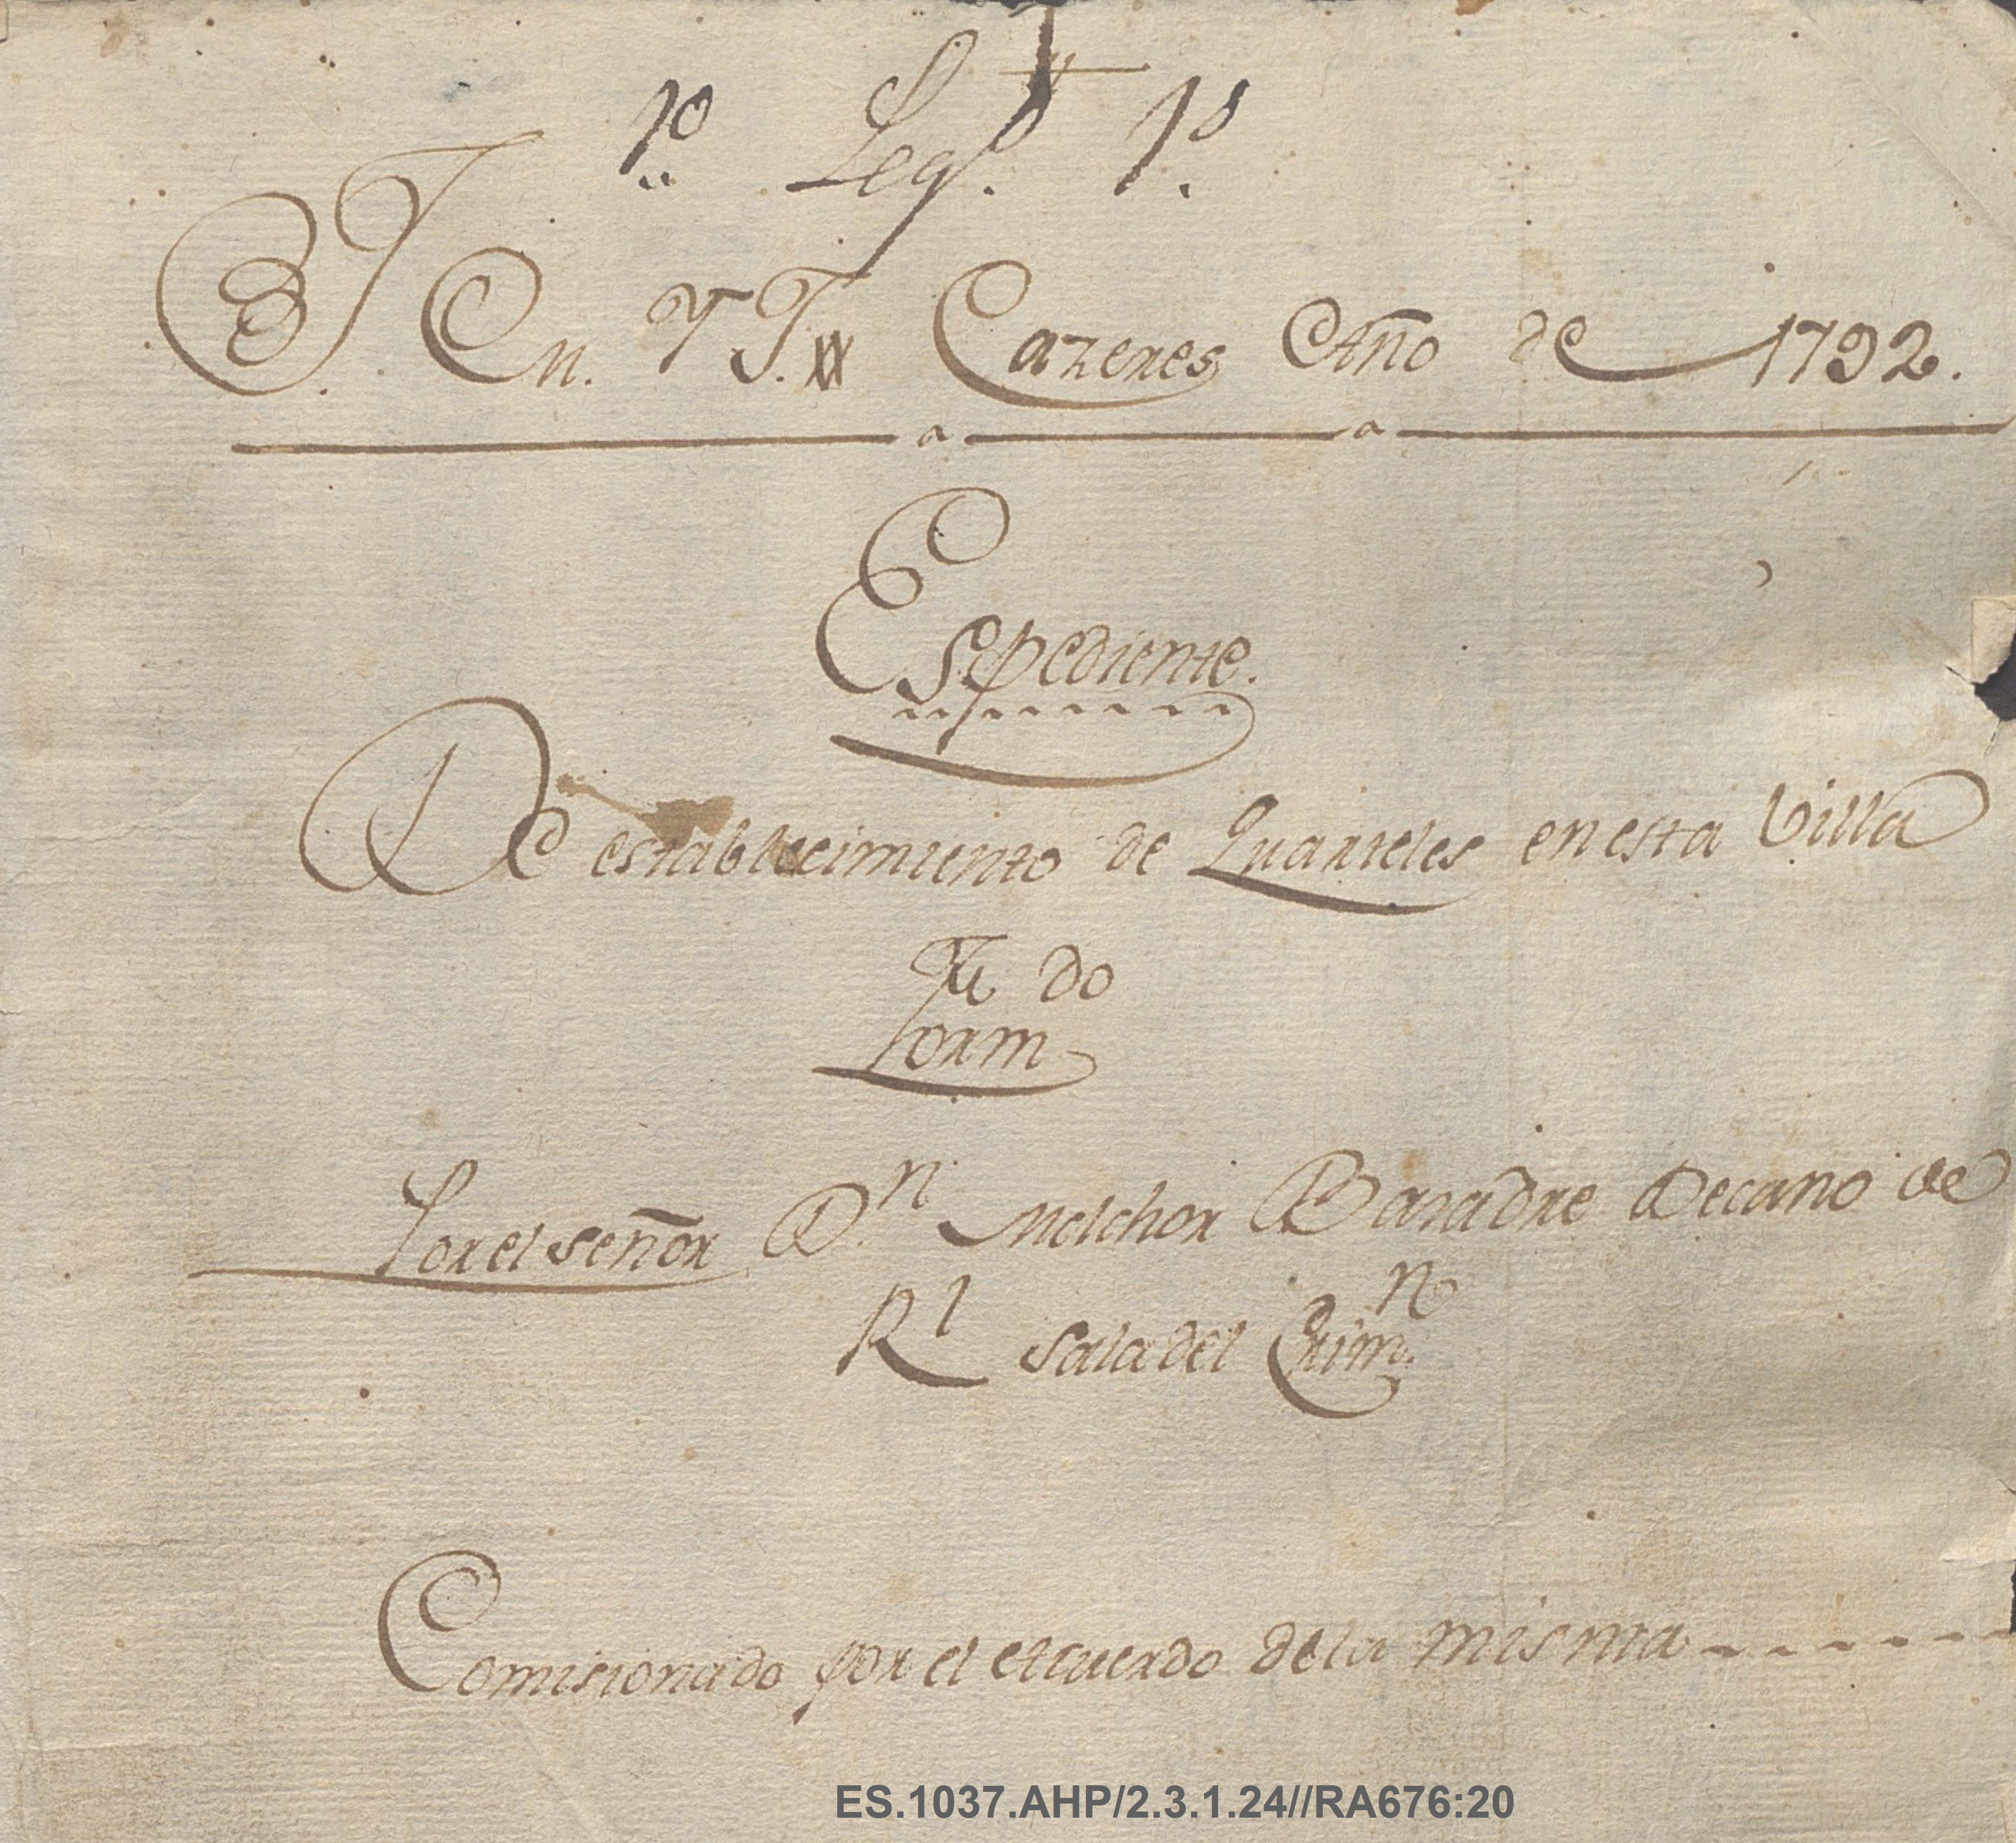 1º Legº 1º
Cazeres Año de 1792.
Espediente.
De establecimiento de Quarteles en esta Villa
do
Form
Por el señor Dn. Melchor Basadre Decano de
Rl Sala del Crimn.
Comisionado por el Acuerdo de la misma
ES.1037.AHP/2.3.1.24//RA676:20